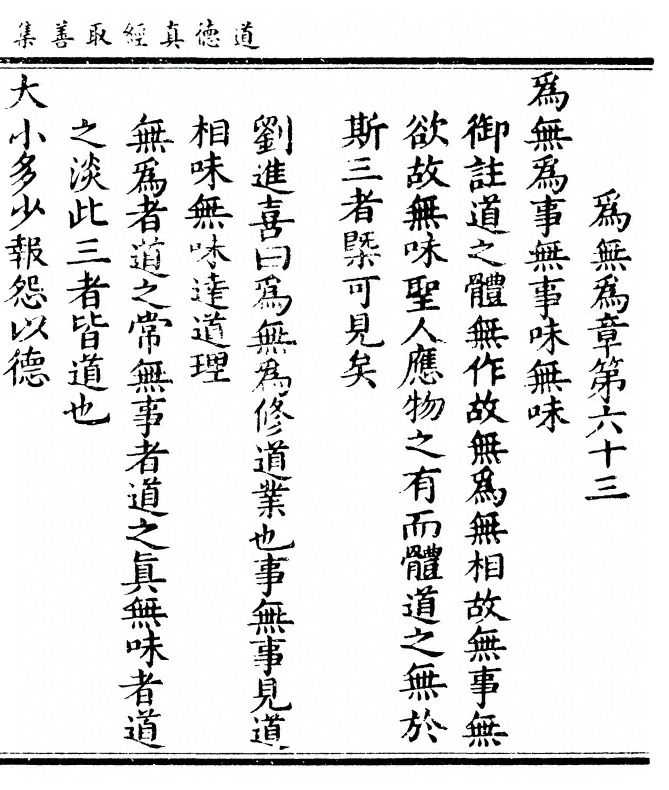 道德真經取善集
爲無爲章第六十三
爲無爲事無事味無味
御註道之體無作故無爲無相故無事無
欲故無味聖人應物之有而體道之無於
斯三者槩可見矣
劉進喜曰爲無爲修道業也事無事見道
相味無味達道理
無爲者道之常無事者道之眞無味者道
之淡此三者皆道也
大小多少報怨以德